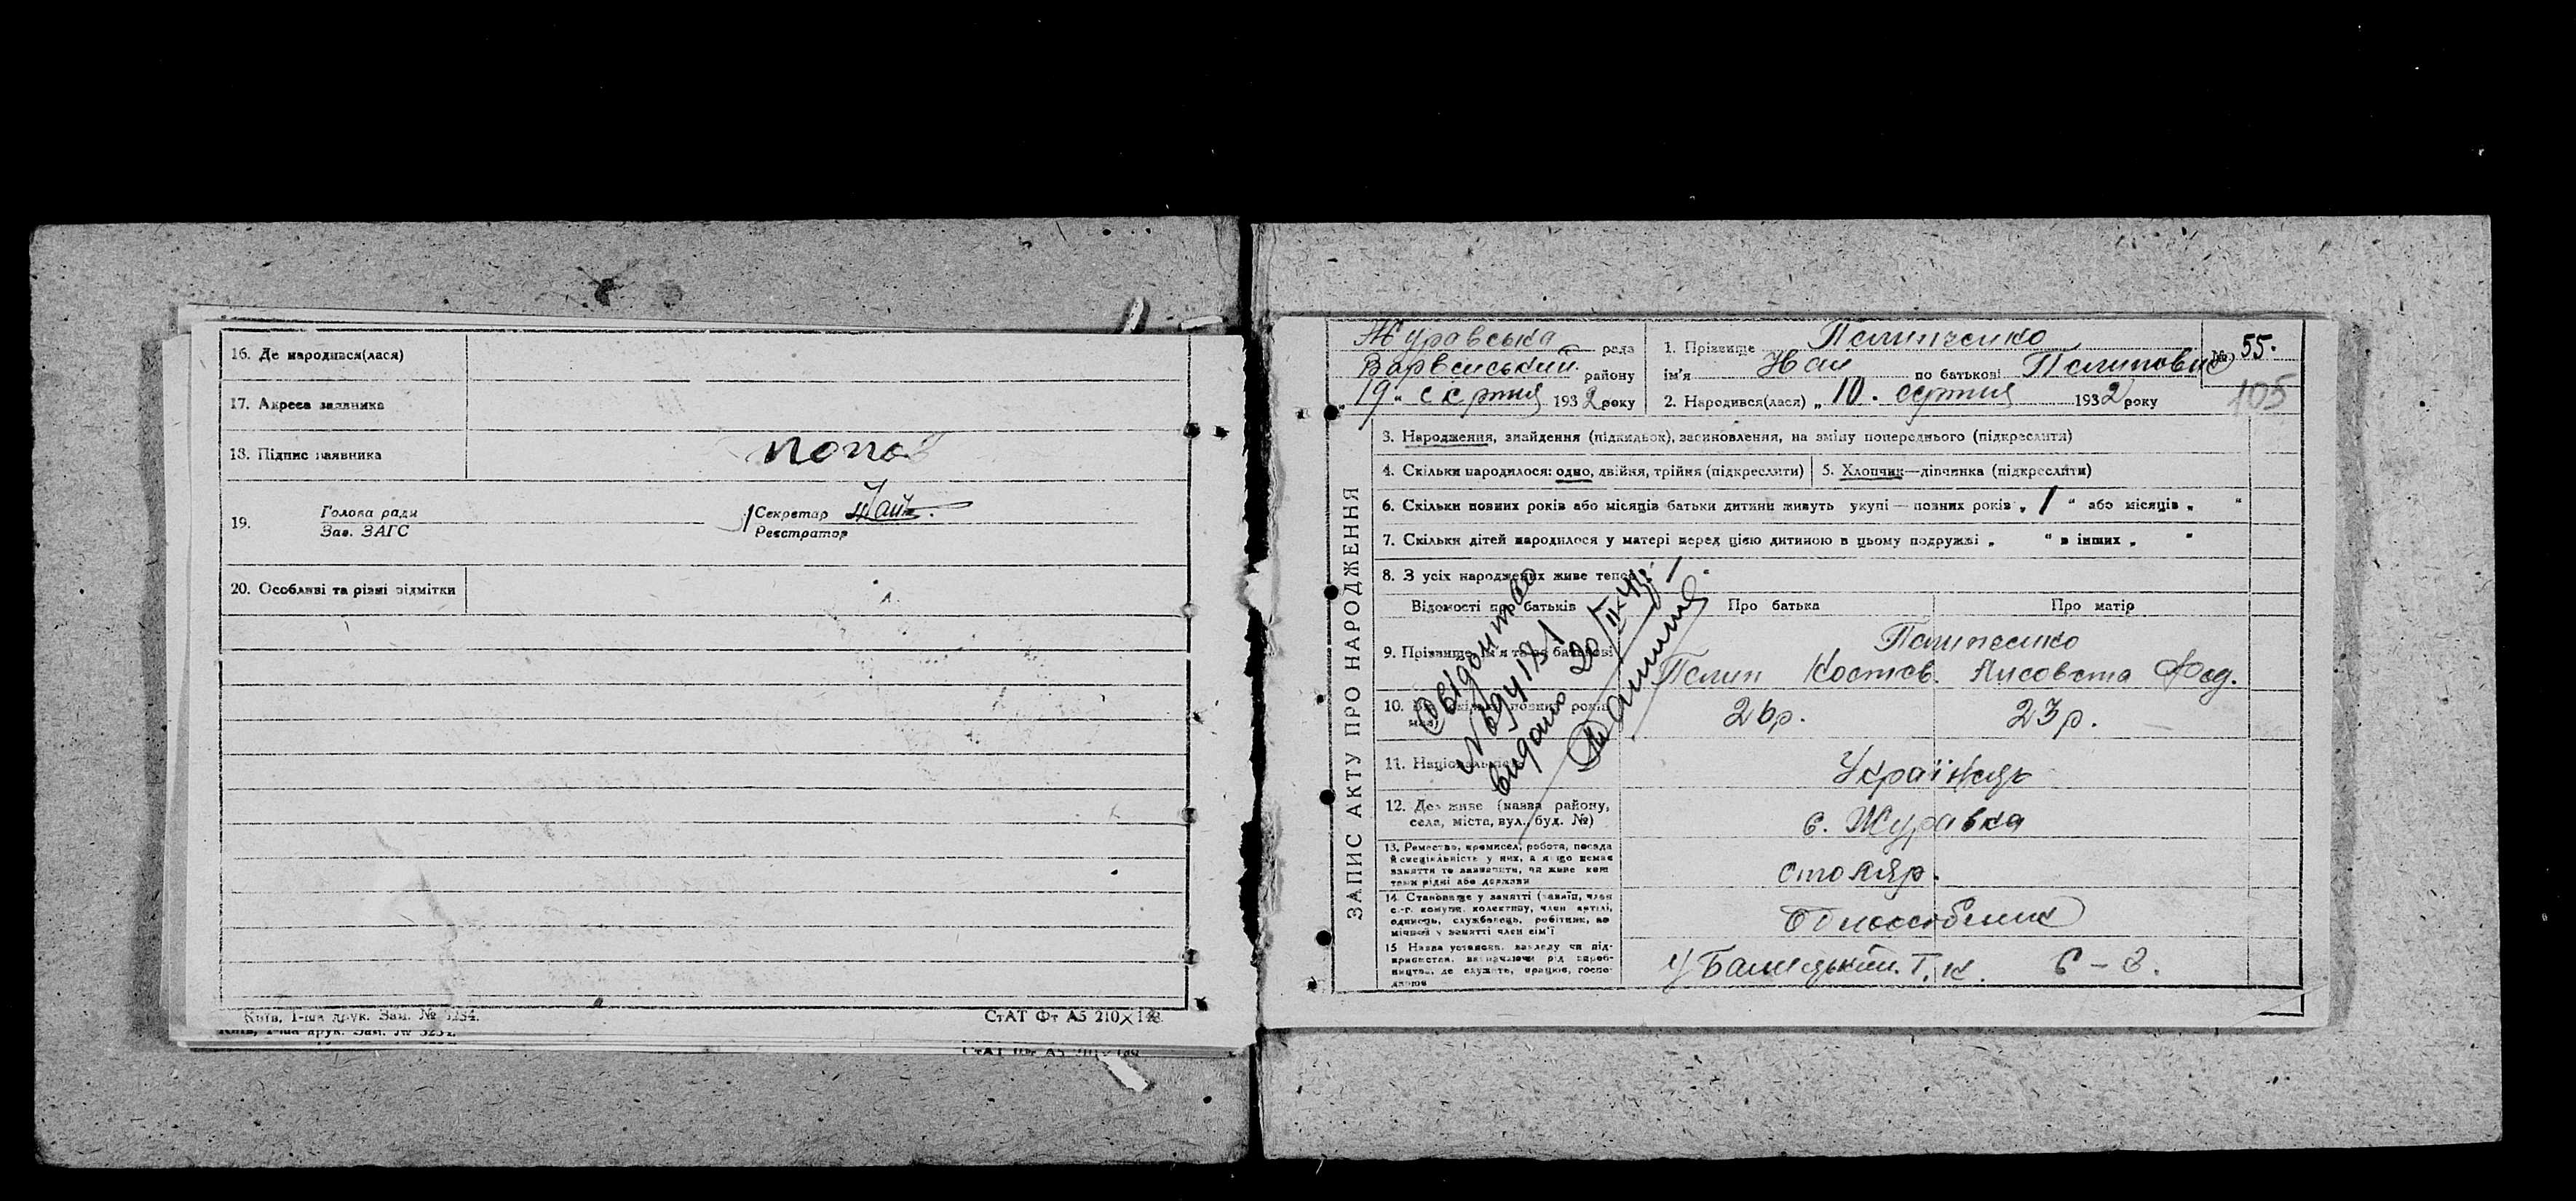 16. Де народився(лася)
17. Адреса заявника
18. Підпис заявника
19. Голова ради
Зав. ЗАГС
Секретар
Реєстратор
20. Особливі та різні відмітки
Київ, 1-ша друк. Зам. № 3284.
СтАТ Фт А5 210×148
Журавська рада
Варвенський району
"19" серпня 1932 року
1. Прізвище
ім'я по батькові
№ 55.
105
2. Народився(лася) „10. серпня 1932 року
ЗАПИС АКТУ ПРО НАРОДЖЕННЯ
3. Народження, знайдення (підкидьок), засиновлення, на зміну попереднього (підкреслити)
4. Скільки народилося: одно, двійня, трійня (підкреслити)
5. Хлопчик—дівчинка (підкреслити)
6. Скільки повних років або місяців батьки дитини живуть укупі — повних років „ 1 " або місяців „ "
7. Скільки дітей народилося у матері перед цією дитиною в цьому подружжі „ " в інших „ "
8. З усіх народжених живе тепер
Відомості про батьків
Про батька
Про матір
9. Прізвище, ім'я та по батькові
Костов. Лисовета Фед.
10.
26р.
23р.
11. Національність
Українець
12. Де живе (назва району,
села, міста, вул., буд. №)
с. Журавка
13. Ремество, промисел, робота, посада
й спеціяльність у них, а якщо немає
заняття то зазначити, чи живе кош
тами рідні або держави
столяр.
14. Становище у занятті (хазяїн, член
с.-г. комуни, колективу, член артілі,
одинець, службовець, робітник, по
мічний у занятті член сім'ї
Одноосібник
15. Назва установи, закладу чи під-
приємства, зазначаючи рід вироб-
ництва, де служить, працює, госпо-
дарює
Свідоцтво
видано 20